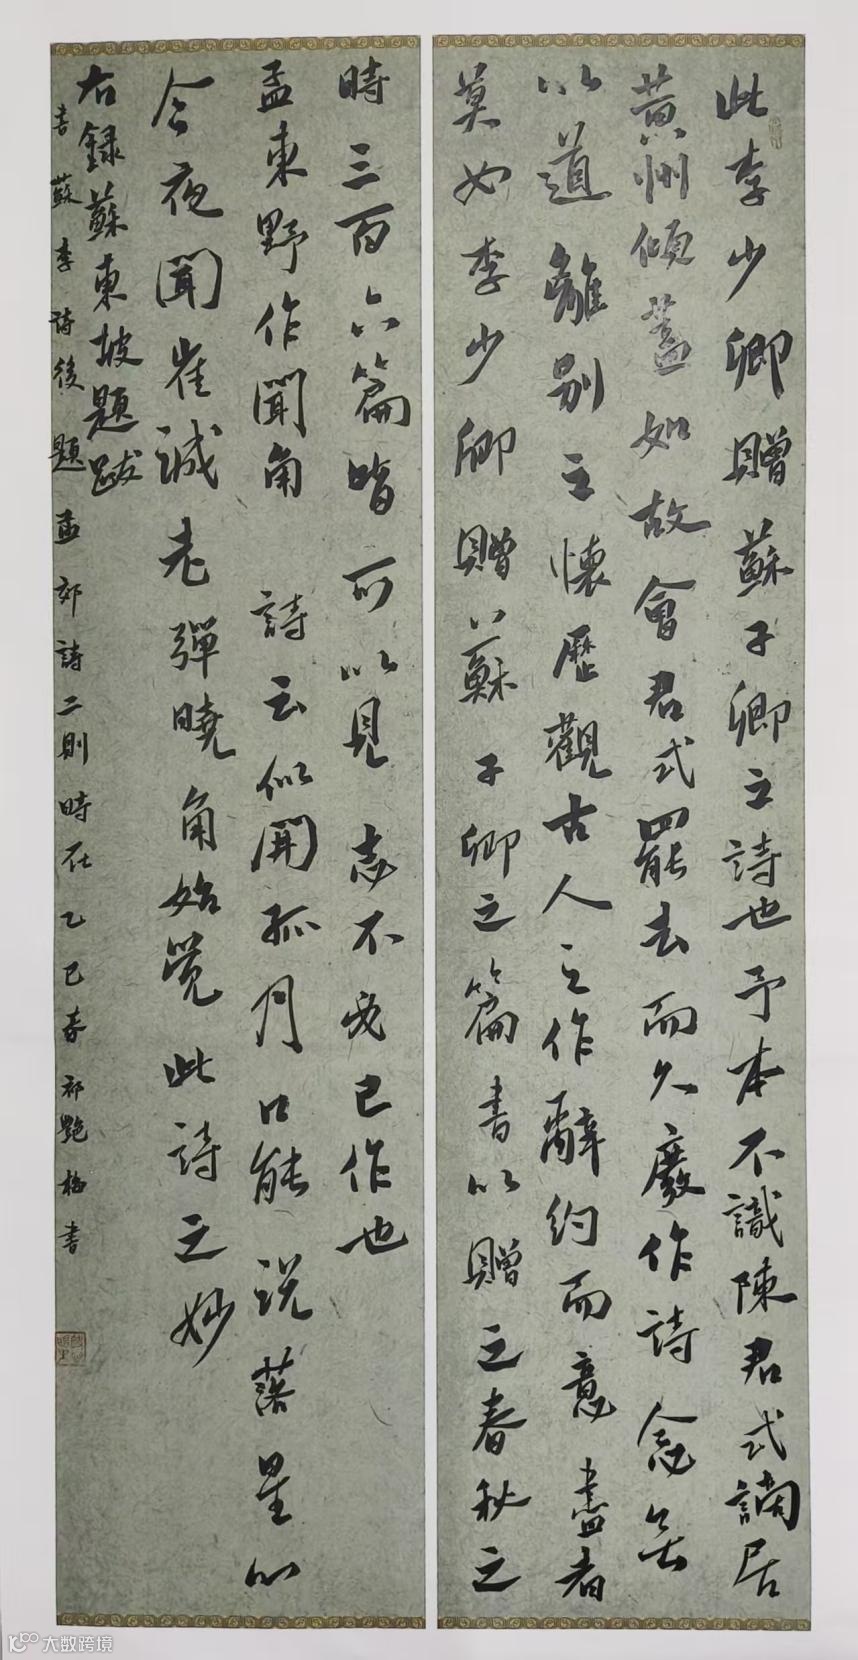 此李少卿贈蘇子卿之詩也予本不識陳君式謫居
黃州傾蓋如故會君式罷去而久廢作詩念無
以道離別之懷歷觀古人之作辭約而意盡者
莫如李少卿贈蘇子卿之篇書以贈之春秋之
時三百六篇皆可以見志不必己作也
孟東野作聞角詩云似開孤月口能説落星心
今夜聞崔誠老彈曉角始覺此詩之妙
右録蘇東坡題跋
書蘇李詩後題孟郊詩二則時在乙巳春祁艷梅書
大数跨境